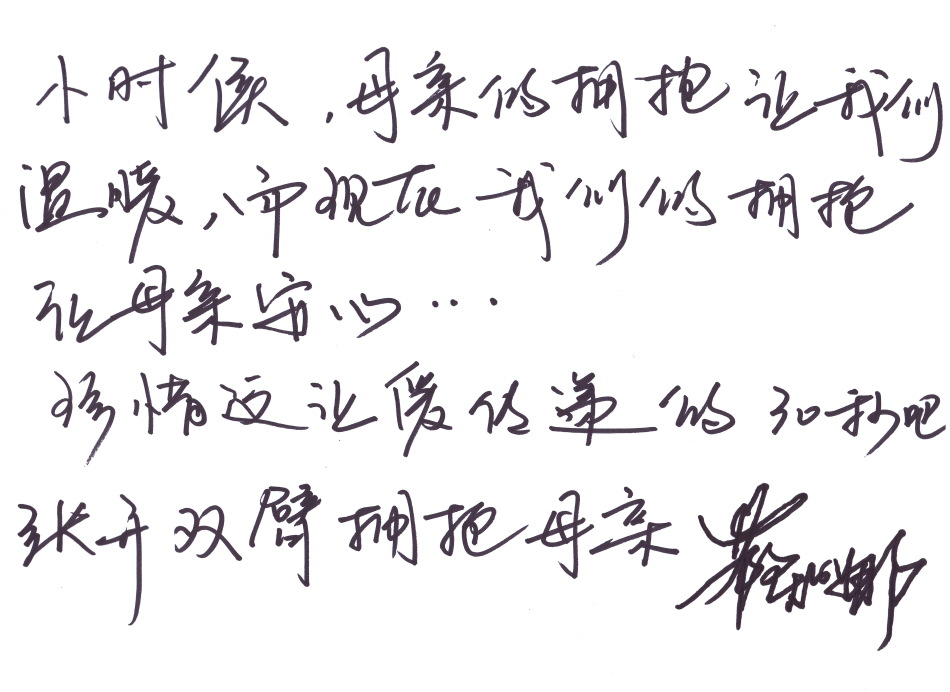 小时候,母亲的拥抱让我们
温暖,而现在我们的拥抱
让母亲安心…
珍惜这让爱传递的30秒吧
张开双臂拥抱母亲